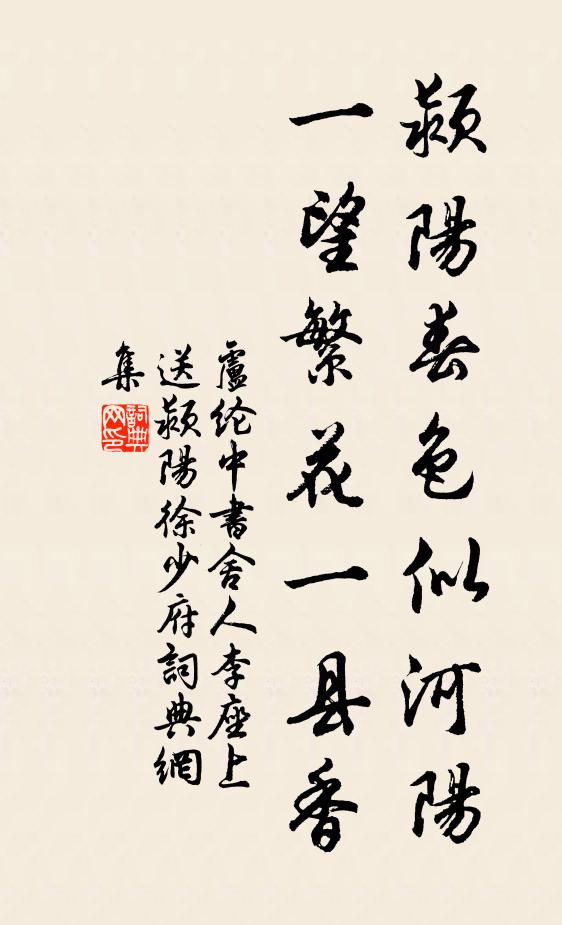 潁陽春色似河陽
一望繁花一县香
盧纶中書舍人李座上
送潁陽徐少府詞典網
集
詞典网印